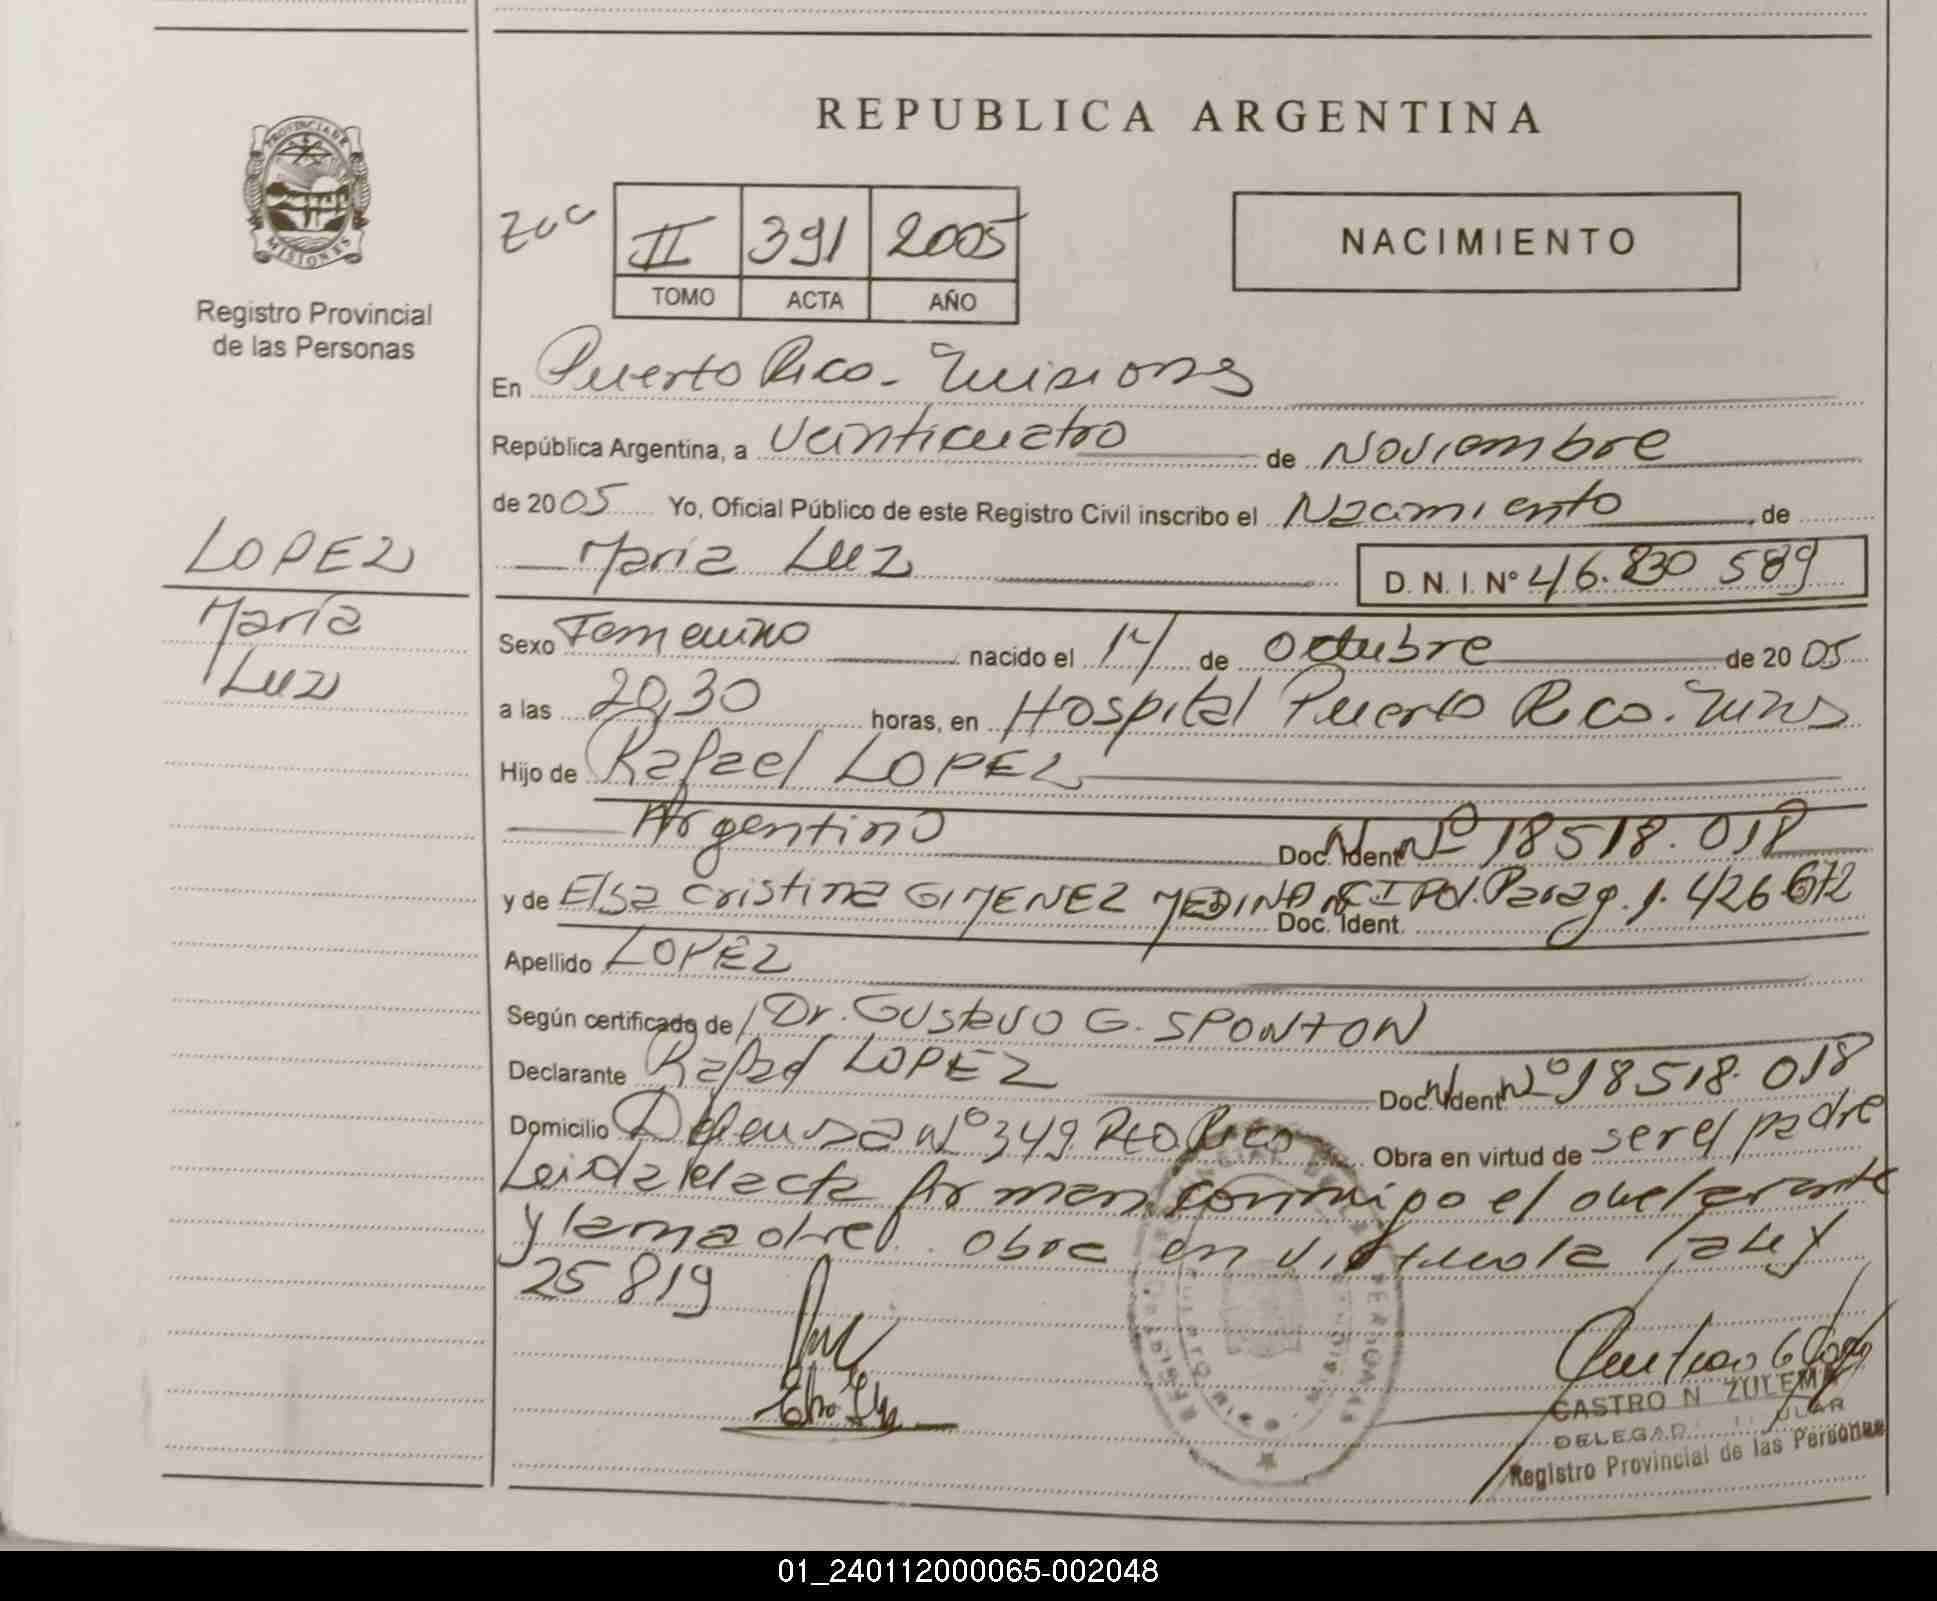 REPUBLICA ARGENTINA
PROVINCIA DE
MISIONES
Registro Provincial
de las Personas
II 391 2005
TOMO ACTA AÑO
NACIMIENTO
En Puerto Rico - Misiones
República Argentina, a Veinticuatro de Noviembre
de 2005 Yo, Oficial Público de este Registro Civil inscribo el Nacimiento de
LOPEZ
María Luz D. N. I. N° 46.830 589
María
Luz
Sexo Femenino nacido el 14 de Octubre de 2005
a las 20,30 horas, en Hospital Puerto Rico. Mnes
Hijo de Rafael LOPEZ
Argentino Doc. Ident. N° 18518.018
y de Elsa Cristina GIMENEZ MEDINA CI Pol. Parag. 1.426 672
Doc. Ident.
Apellido LOPEZ
Según certificado de Dr. Gustavo G. SPONTON
Declarante Rafael LOPEZ Doc. Ident. N° 18518.018
Domicilio Defensa N° 349 Pto Rico Obra en virtud de ser el padre
Leida el acta firman conmigo el declarante
y la madre. Obra en virtud de la Ley
25 819
CASTRO N ZULEMA
Registro Provincial de las Personas
01_240112000065-002048